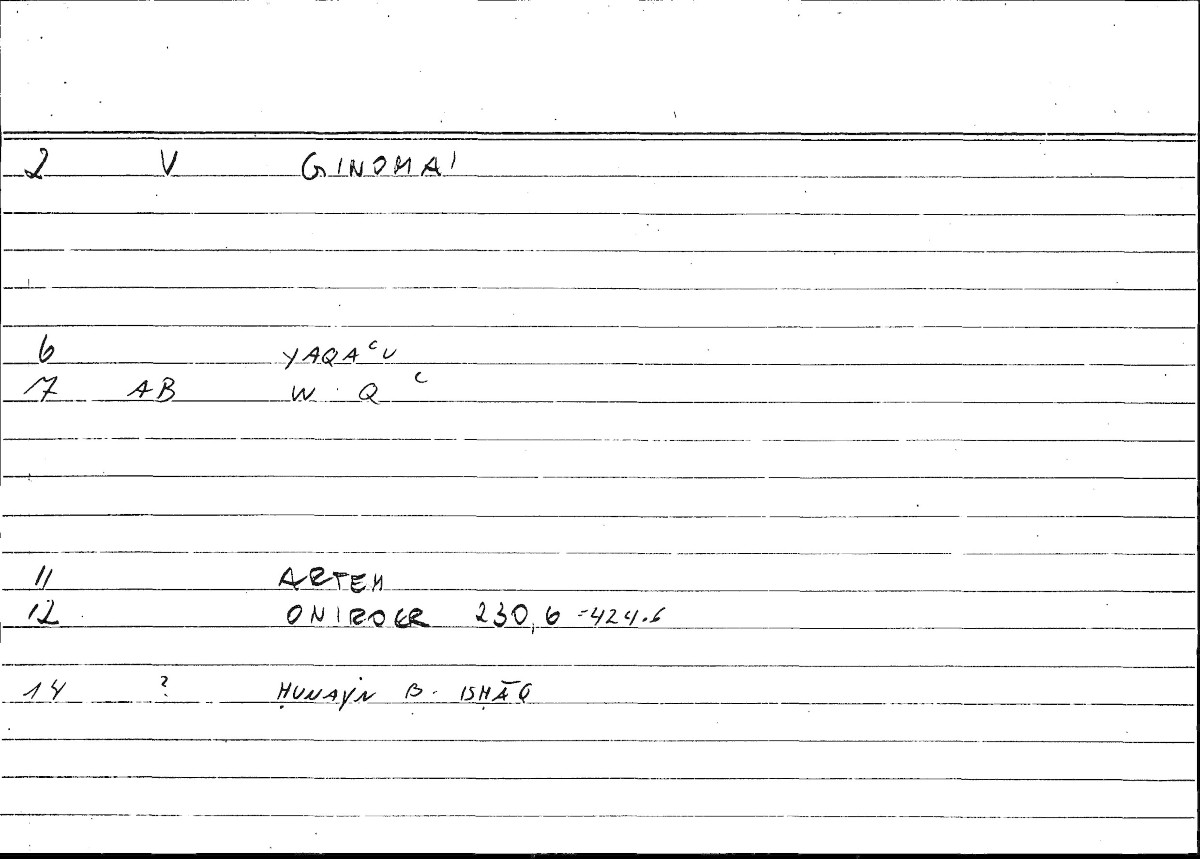 2 V GINOMAI
6 YAQAʿU
17 AB W Q ʿ
11 ARTEM
12 ONIROCR 230,6 =424.6
14 ? ḤUNAYN B. ISḤĀQ